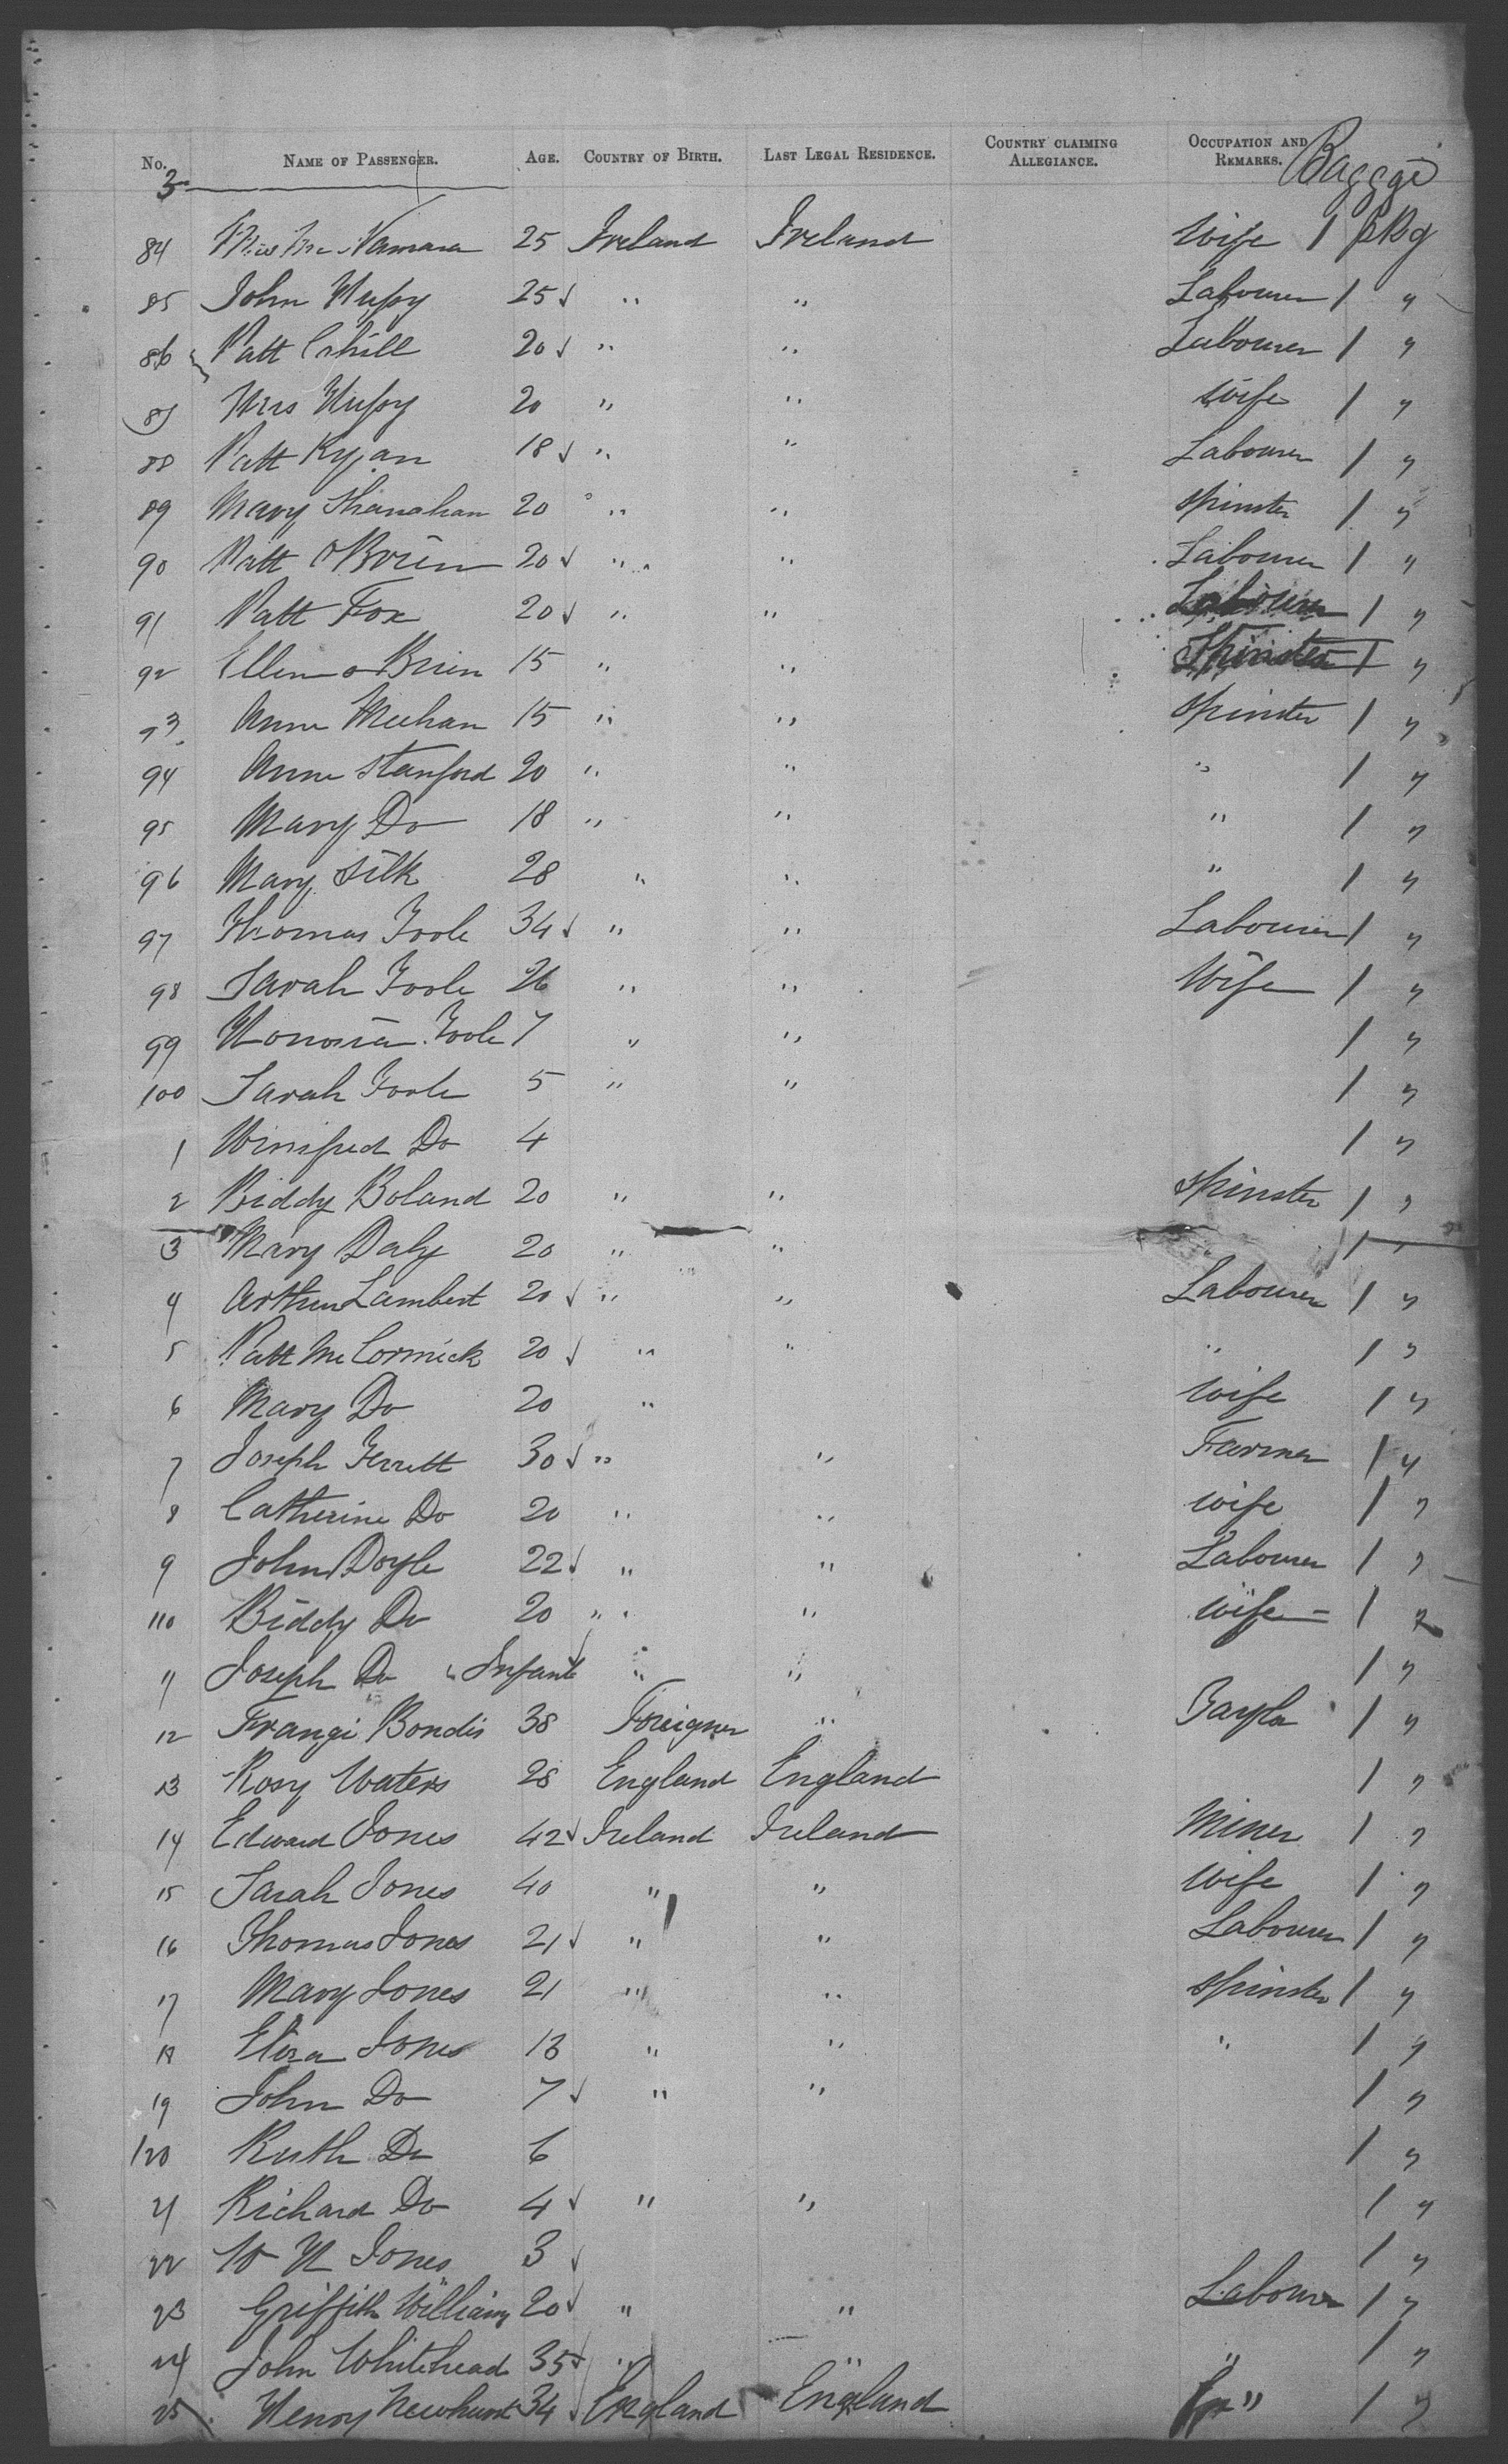 No. NAME OF PASSENGER. AGE. COUNTRY OF BIRTH. LAST LEGAL RESIDENCE. COUNTRY CLAIMING ALLEGIANCE. OCCUPATION AND REMARKS. Baggge
3
84 Mrs Mc Namara 25 Ireland Ireland Wife 1 pkg
85 John 25 " " Labourer 1 "
86 Patt Cahill 20 " " Labourer 1 "
87 Mrs 20 " " Wife 1 "
88 Patt Ryan 18 " " Labourer 1 "
89 Mary Shanahan 20 " " Spinster 1 "
90 Patt OBrien 20 " " Labourer 1 "
91 Patt Fox 20 " " Labourer 1 "
92 Ellen o Brien 15 " " Spinster 1 "
93 Anne Meehan 15 " " Spinster 1 "
94 Anne Stanford 20 " " " 1 "
95 Mary Do 18 " " " 1 "
96 Mary Silk 28 " " " 1 "
97 Thomas Toole 34 " " Labourer 1 "
98 Sarah Toole 26 " " Wife 1 "
99 Honoria Toole 7 " " 1 "
100 Sarah Toole 5 " " 1 "
1 Winifred Do 4 1 "
2 Biddy Boland 20 " " Spinster 1 "
3 Mary Daly 20 " " 1 "
4 Arthur Lambert 20 " " Labourer 1 "
5 Patt Mc Cormick 20 " " " 1 "
6 Mary Do 20 " Wife 1 "
7 Joseph 30 " " Farmer 1 "
8 Catherine Do 20 " " Wife 1 "
9 John Doyle 22 " " Labourer 1 "
110 Biddy Do 20 " " Wife 1 "
11 Joseph Do Infant " " 1 "
12 Frangi Bondis 38 Foreigner " 1 "
13 Rosy Waters 28 England England 1 "
14 Edward Jones 42 Ireland Ireland Miner 1 "
15 Sarah Jones 40 " " Wife 1 "
16 Thomas Jones 21 " " Labourer 1 "
17 Mary Jones 21 " " Spinster 1 "
18 Eliza Jones 13 " " " 1 "
19 John Do 7 " " 1 "
120 Ruth Do 6 1 "
21 Richard Do 4 " " 1 "
22 W H Jones 3 1 "
23 Griffith William 20 " " Labourer 1 "
24 John Whitehead 35 " " " 1 "
25 Henry Newhurst 34 England England " 1 "